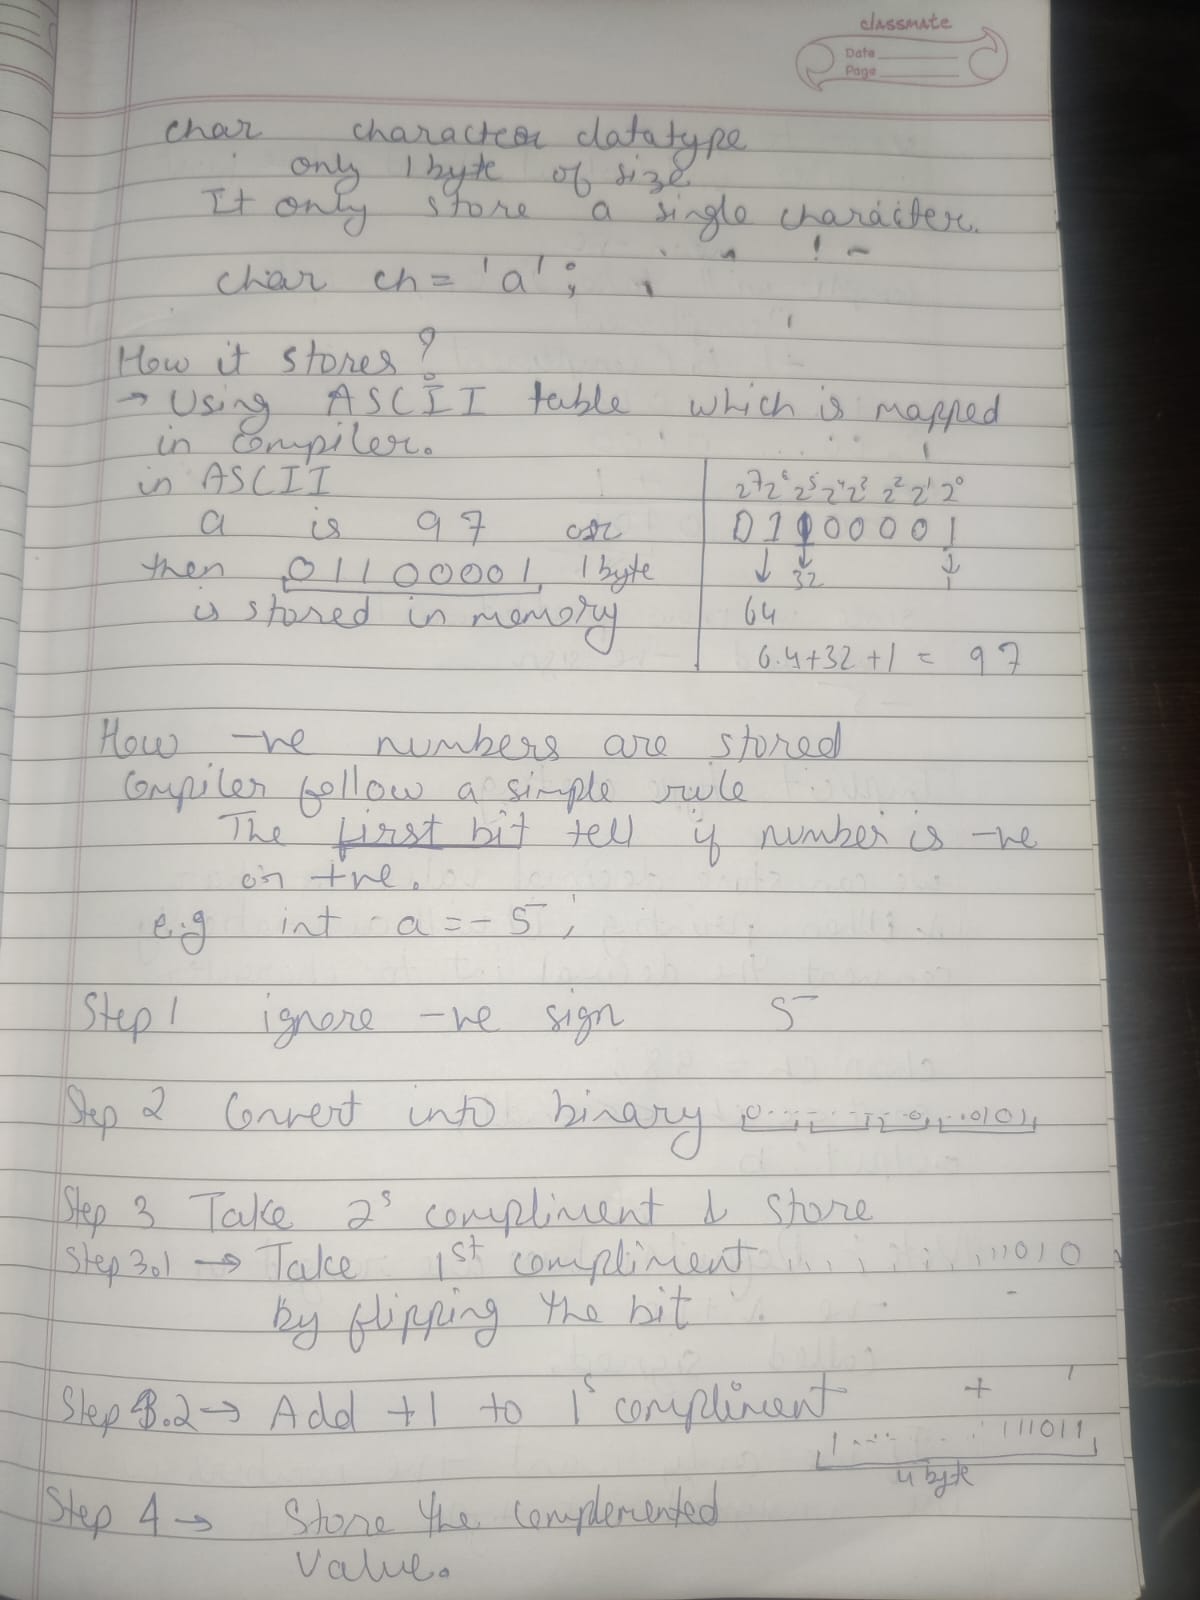 classmate
Date
Page
char character datatype
only 1 byte of size
It only store a single character.
char ch = 'a';
How it stores?
→ Using ASCII table which is mapped
in compiler.
in ASCII
a is 97 or
then 01100001 1 byte
is stored in memory
2⁷ 2⁶ 2⁵ 2⁴ 2³ 2² 2¹ 2⁰
0 1 1 0 0 0 0 1
↓ ↓ ↓
32 1
64
64+32+1 = 97
How -ve numbers are stored
Compiler follow a simple rule
The first bit tell if number is -ve
or +ve.
e.g int a = -5;
Step 1 ignore -ve sign 5
Step 2 Convert into binary 0 0101
Step 3 Take 2s compliment & store
Step 3.1 → Take 1st compliment 11010
by flipping the bit
Step 3.2 → Add +1 to 1s compliment + 1
1 111011
4 byte
Step 4 → Store the complemented
value.